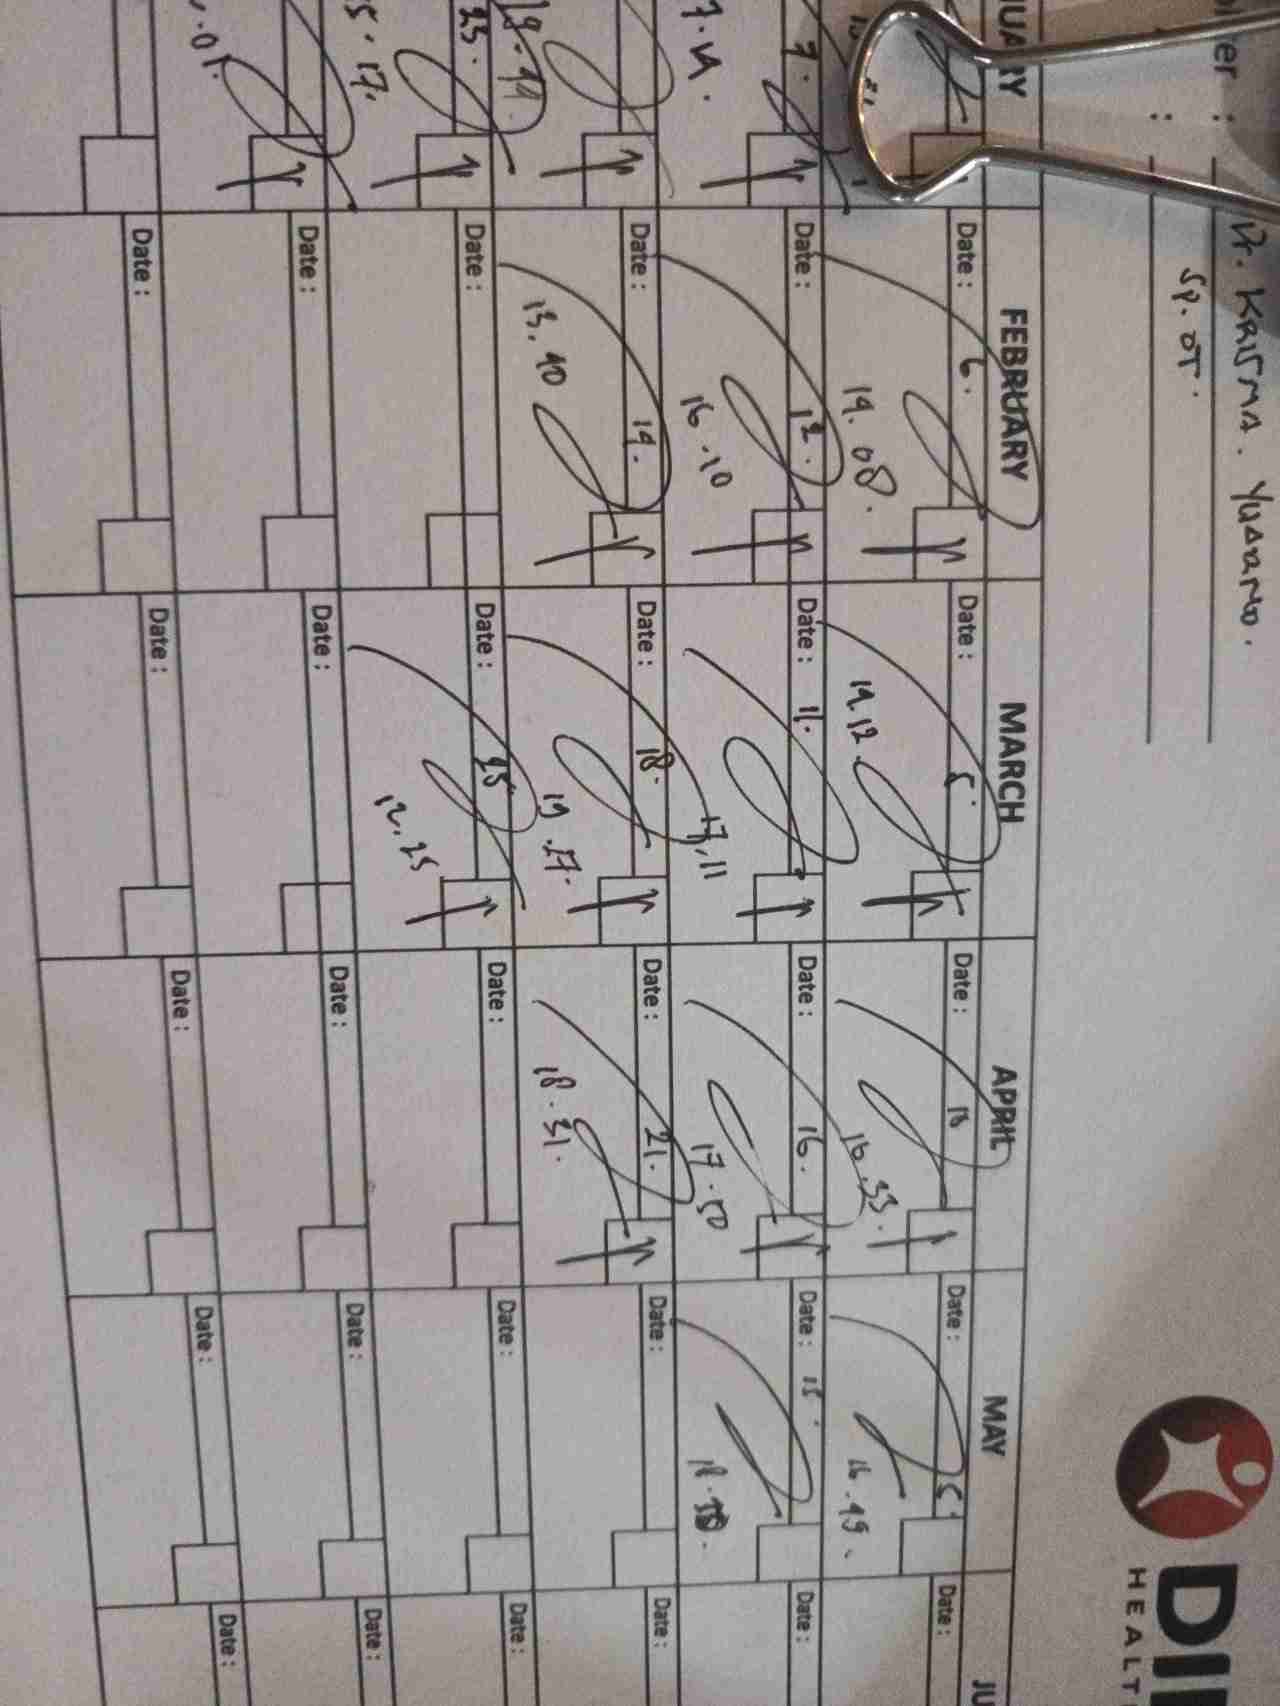 Dr. KRISMA. YUDARNO.
Sp. OT.
DI
HEALT
FEBRUARY
MARCH
APRIL
MAY
JU
Date : 6.
14. 08.
Date : 5.
14.12
Date : 15
16.33.
Date : 5.
16.49.
Date :
7.
Date : 12.
16.10
Date : 11.
17.11
Date : 16.
17.50
Date : 15.
Date :
Date : 19.
13.40
Date : 18.
19.27.
Date : 21.
18.31.
Date :
Date :
25.
Date :
Date : 25
12.25
Date :
Date :
Date :
5.17.
Date :
Date :
Date :
Date :
Date :
.01.
Date :
Date :
Date :
Date :
Date :